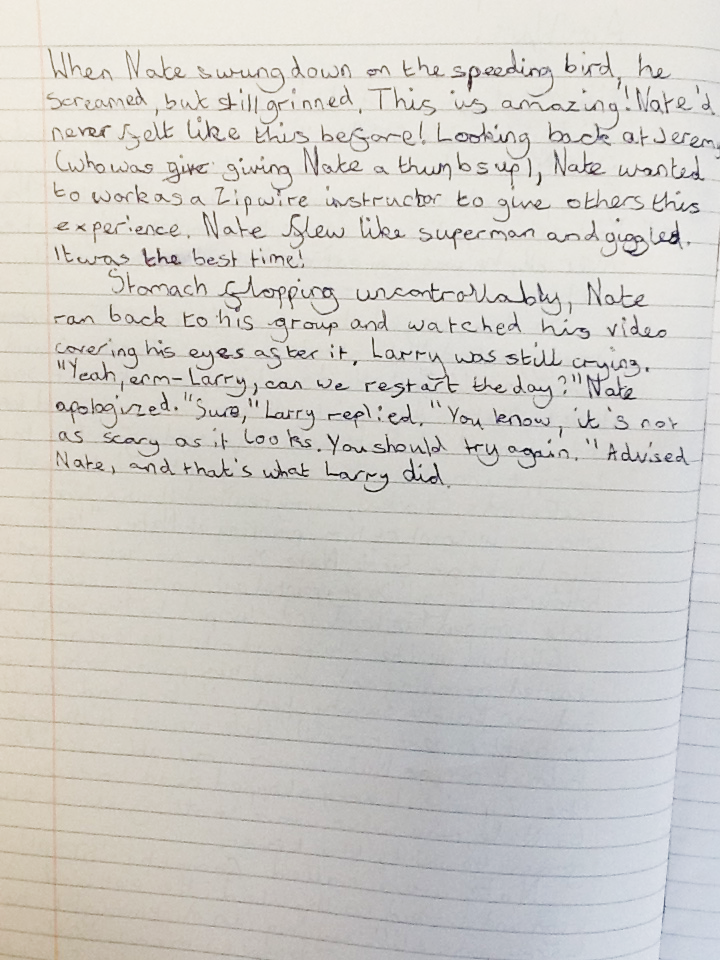 When Nate swung down on the speeding bird, he
screamed, but still grinned. This is amazing! Nate'd
never felt like this before! Looking back at Jeremy
(who was give giving Nate a thumbs up), Nate wanted
to work as a Zipwire instructor to give others this
experience. Nate flew like superman and giggled.
It was the best time!
Stomach flopping uncontrollably, Nate
ran back to his group and watched his video
covering his eyes after it, Larry was still crying.
"Yeah, erm- Larry, can we restart the day?" Nate
apologized. "Sure," Larry replied. "You know, it's not
as scary as it looks. You should try again." Advised
Nate, and that's what Larry did.